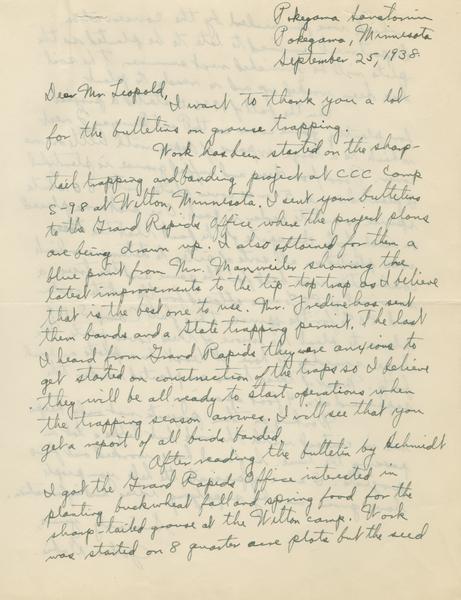 Pokegama Sanatorium
Pokegama, Minnesota
September 25, 1938.
Dear Mr. Leopold,
I want to thank you a lot
for the bulletins on grouse trapping.
Work has been started on the sharp-
tail trapping and banding project at CCC Camp
S-98 at Wilton, Minnesota. I sent your bulletins
to the Grand Rapids Office where the project plans
are being drawn up. I also obtained for them a
blue print from Mr. Manweiler showing the
latest improvements to the tip-top trap as I believe
that is the best one to use. Mr. Fredine has sent
them bands and a State trapping permit. The last
I heard from Grand Rapids they were anxious to
get started on construction of the traps so I believe
they will be all ready to start operations when
the trapping season arrives. I will see that you
get a report of all birds banded.
After reading the bulletin by Schmidt
I got the Grand Rapids Office interested in
planting buckwheat fall and spring food for the
sharp-tailed grouse at the Wilton camp. Work
was started on 8 quarter acre plots but the seed